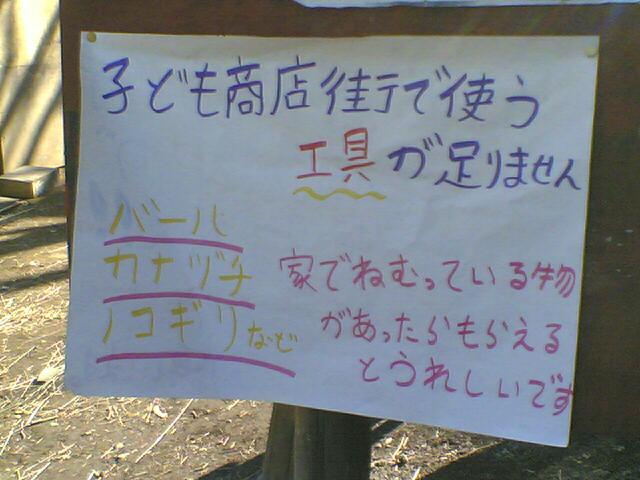 子ども商店街で使う
工具が足りません
バール
カナヅチ
ノコギリなど
家でねむっている物
があったらもらえる
とうれしいです